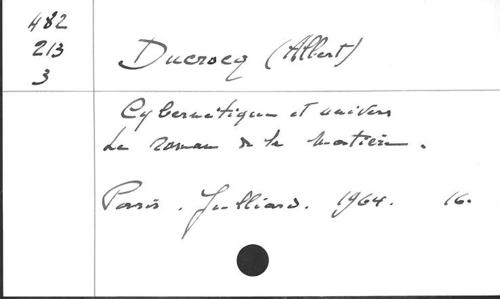 482
213
3
Ducrocq (Albert)
Cybernétique et univers
Le roman de la matière.
Paris. Julliard. 1964. 16.